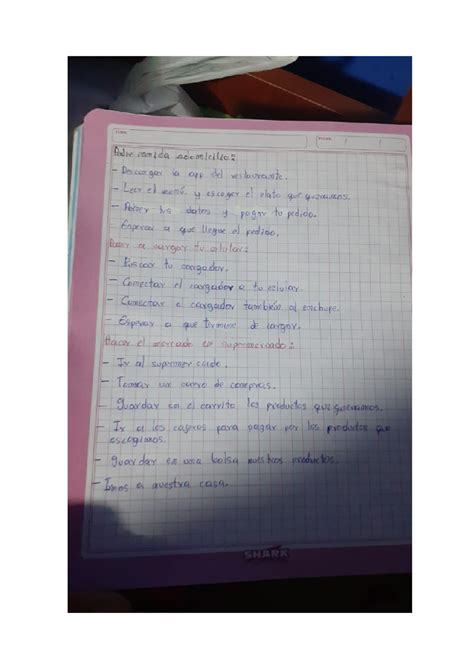 Pedir comida adomicilio:
- Descargar la app del restaurante.
- Leer el menú y escoger el plato que queramos.
- Poner tus datos y pagar tu pedido.
- Esperar a que llegue el pedido.
Poner a cargar tu celular:
- Buscar tu cargador.
- Conectar el cargador a tu celular.
- Conectar el cargador también al enchufe.
- Esperar a que termine de cargar.
Hacer el mercado en supermercado:
- Ir al supermercado.
- Tomar un carro de compras.
- guardar en el carrito los productos que queramos.
- Ir a los cajeros para pagar por los productos que
escogimos.
- guardar en una bolsa nuestros productos.
- Irnos a nuestra casa.
SHARK